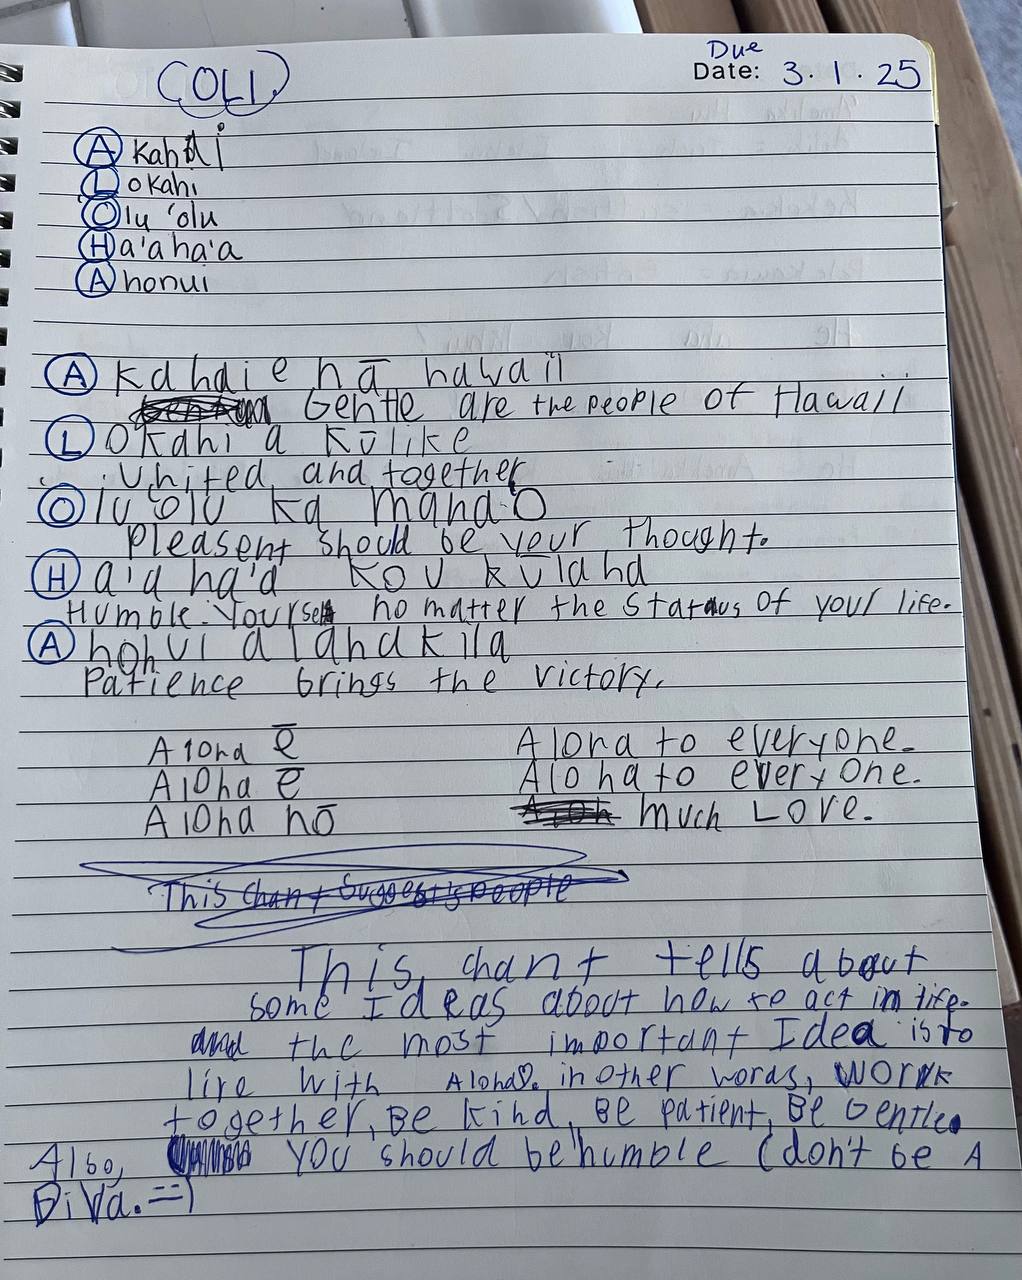 COLI
Due
Date: 3.1.25
Akahai
Lokahi
Olu 'olu
Ha'a ha'a
Ahonui
A kahai e nā hawaii
Gentle are the people of Hawaii
Lokahi a Kūlike
United and together
Olu Olu ka mana'O
Pleasent should be your thought.
Ha'a ha'a kou kūlana
Humble yourself no matter the status of your life.
Ahonui a lanakila
Patience brings the victory.
Aloha ē Aloha to everyone.
Aloha ē Aloha to everyone.
Aloha nō Much Love.
This chant suggest's people
This chant tells about
some Ideas about how to act in life.
and the most important Idea is to
live with Aloha♡. in other words, work
together, Be kind, Be patient, Be Gentle.
Also, you should be humble (don't be A
Diva. =)